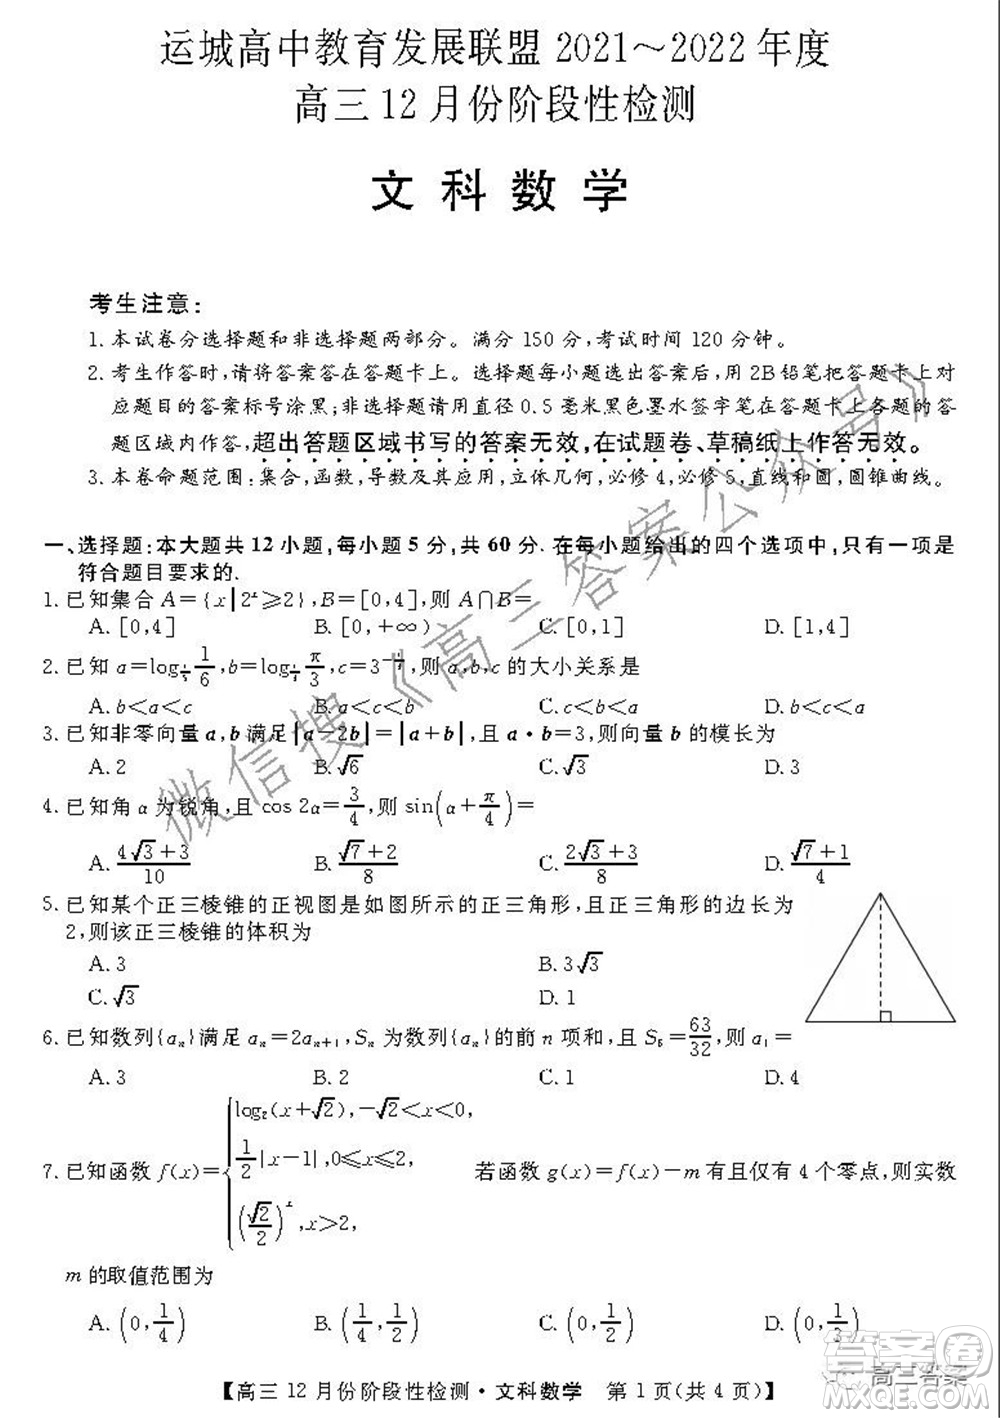 运城高中教育发展联盟 2021～2022 年度
高三 12 月份阶段性检测
文 科 数 学
考生注意:
1. 本试卷分选择题和非选择题两部分。满分 150 分，考试时间 120 分钟。
2. 考生作答时，请将答案答在答题卡上。选择题每小题选出答案后，用 2B 铅笔把答题卡上对
应题目的答案标号涂黑；非选择题请用直径 0.5 毫米黑色墨水签字笔在答题卡上各题的答
题区域内作答，超出答题区域书写的答案无效，在试题卷、草稿纸上作答无效。
3. 本卷命题范围:集合，函数，导数及其应用，立体几何，必修 4，必修 5，直线和圆，圆锥曲线。
一、选择题:本大题共 12 小题，每小题 5 分，共 60 分. 在每小题给出的四个选项中，只有一项是
符合题目要求的.
1. 已知集合 A={x|2ˣ≥2}，B=[0,4]，则 A∩B=
A. [0,4] B. [0,+∞) C. [0,1] D. [1,4]
2. 已知 a=log 1/6，b=log π/3，c=3，则 a，b，c 的大小关系是
A. b<a<c B. a<c<b C. c<b<a D. b<c<a
3. 已知非零向量 a，b 满足|a−2b|=|a+b|，且 a·b=3，则向量 b 的模长为
A. 2 B. √6 C. √3 D. 3
4. 已知角 α 为锐角，且 cos 2α=3/4，则 sin(α+π/4)=
A. (4√3+3)/10 B. (√7+2)/8 C. (2√3+3)/8 D. (√7+1)/4
5. 已知某个正三棱锥的正视图是如图所示的正三角形，且正三角形的边长为
2，则该正三棱锥的体积为
A. 3 B. 3√3
C. √3 D. 1
6. 已知数列{aₙ}满足 aₙ=2aₙ₊₁，Sₙ 为数列{aₙ}的前 n 项和，且 S₆=63/32，则 a₁=
A. 3 B. 2 C. 1 D. 4
7. 已知函数 f(x)={log₂(x+√2)，−√2<x<0，
1/2|x−1|，0≤x≤2，
(√2/2)ˣ，x>2，
若函数 g(x)=f(x)−m 有且仅有 4 个零点，则实数
m 的取值范围为
A. (0,1/4) B. (1/4,1/2) C. (0,1/2) D. (0,1/3)
【高三 12 月份阶段性检测·文科数学 第 1 页(共 4 页)】
微信搜《高三答案公众号》
高三答案
答案圈
MXQE.COM